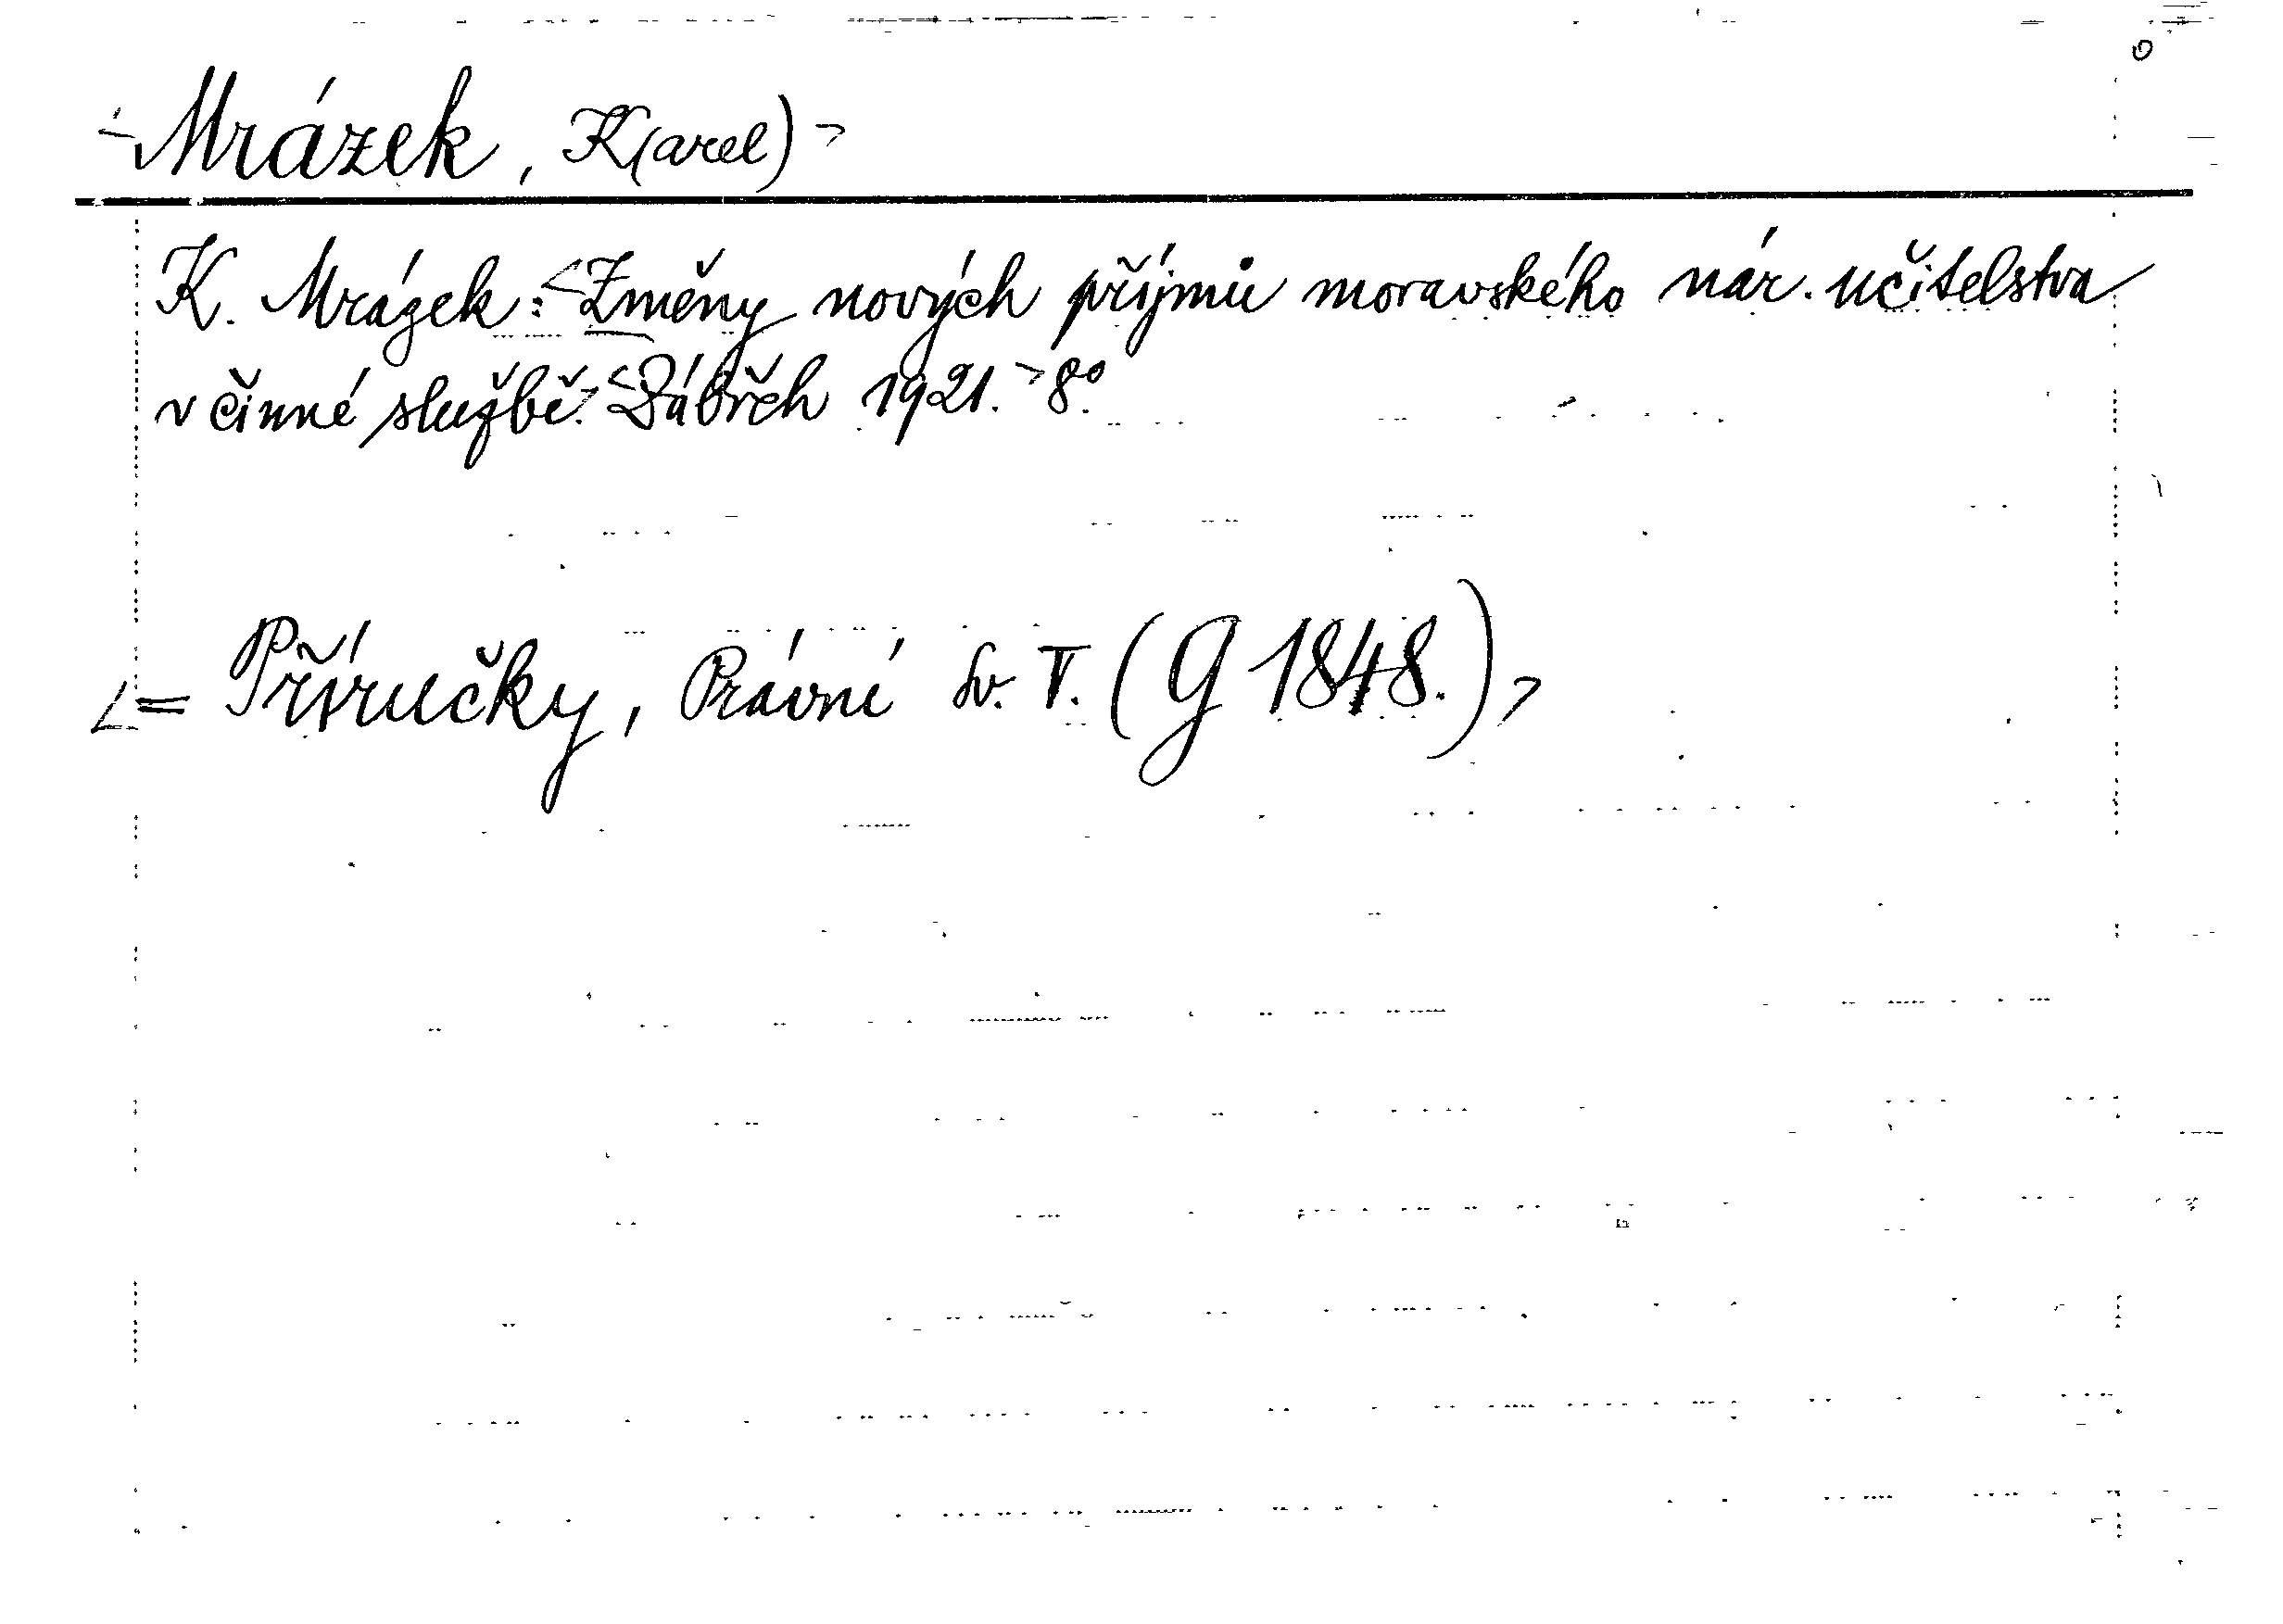 <Mrázek, K(arel)>
K. Mrázek: <Změny nových příjmů moravského nár. učitelstva
v činné službě. <Zábřeh 1921.> 8°.
<= Příručky, Právní sv. V. (G 1848.)>